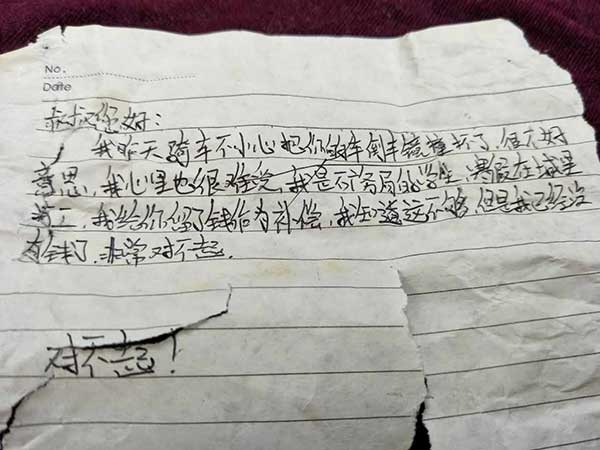 No.
Date
叔叔您好：
我昨天骑车不小心把你的车倒车镜撞坏了，很不好
意思，我心里也很难受，我是的学生，暑假在城里
打工，我给你留了钱作为补偿，我知道这不够，但是我已经没
有钱了，非常对不起.
对不起！